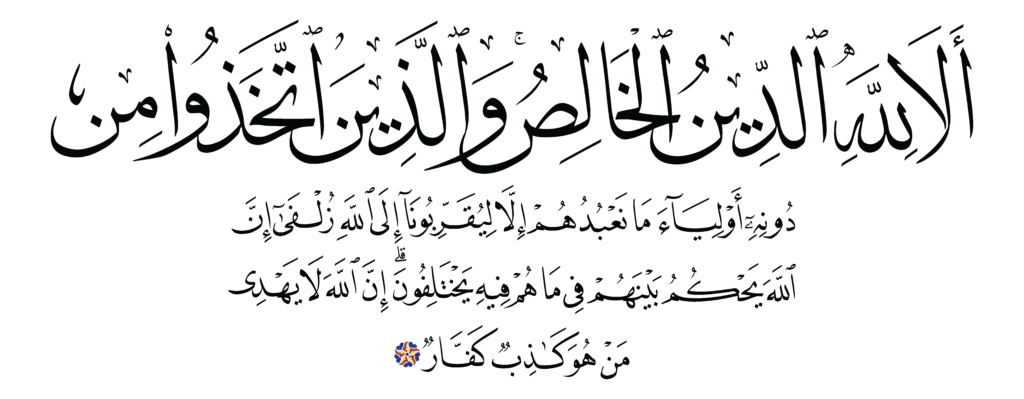 أَلَا لِلَّهِ ٱلدِّينُ ٱلْخَالِصُ ۚ وَٱلَّذِينَ ٱتَّخَذُوا۟ مِن
دُونِهِۦٓ أَوْلِيَآءَ مَا نَعْبُدُهُمْ إِلَّا لِيُقَرِّبُونَآ إِلَى ٱللَّهِ زُلْفَىٰٓ إِنَّ
ٱللَّهَ يَحْكُمُ بَيْنَهُمْ فِى مَا هُمْ فِيهِ يَخْتَلِفُونَ ۗ إِنَّ ٱللَّهَ لَا يَهْدِى
مَنْ هُوَ كَـٰذِبٌ كَفَّارٌ